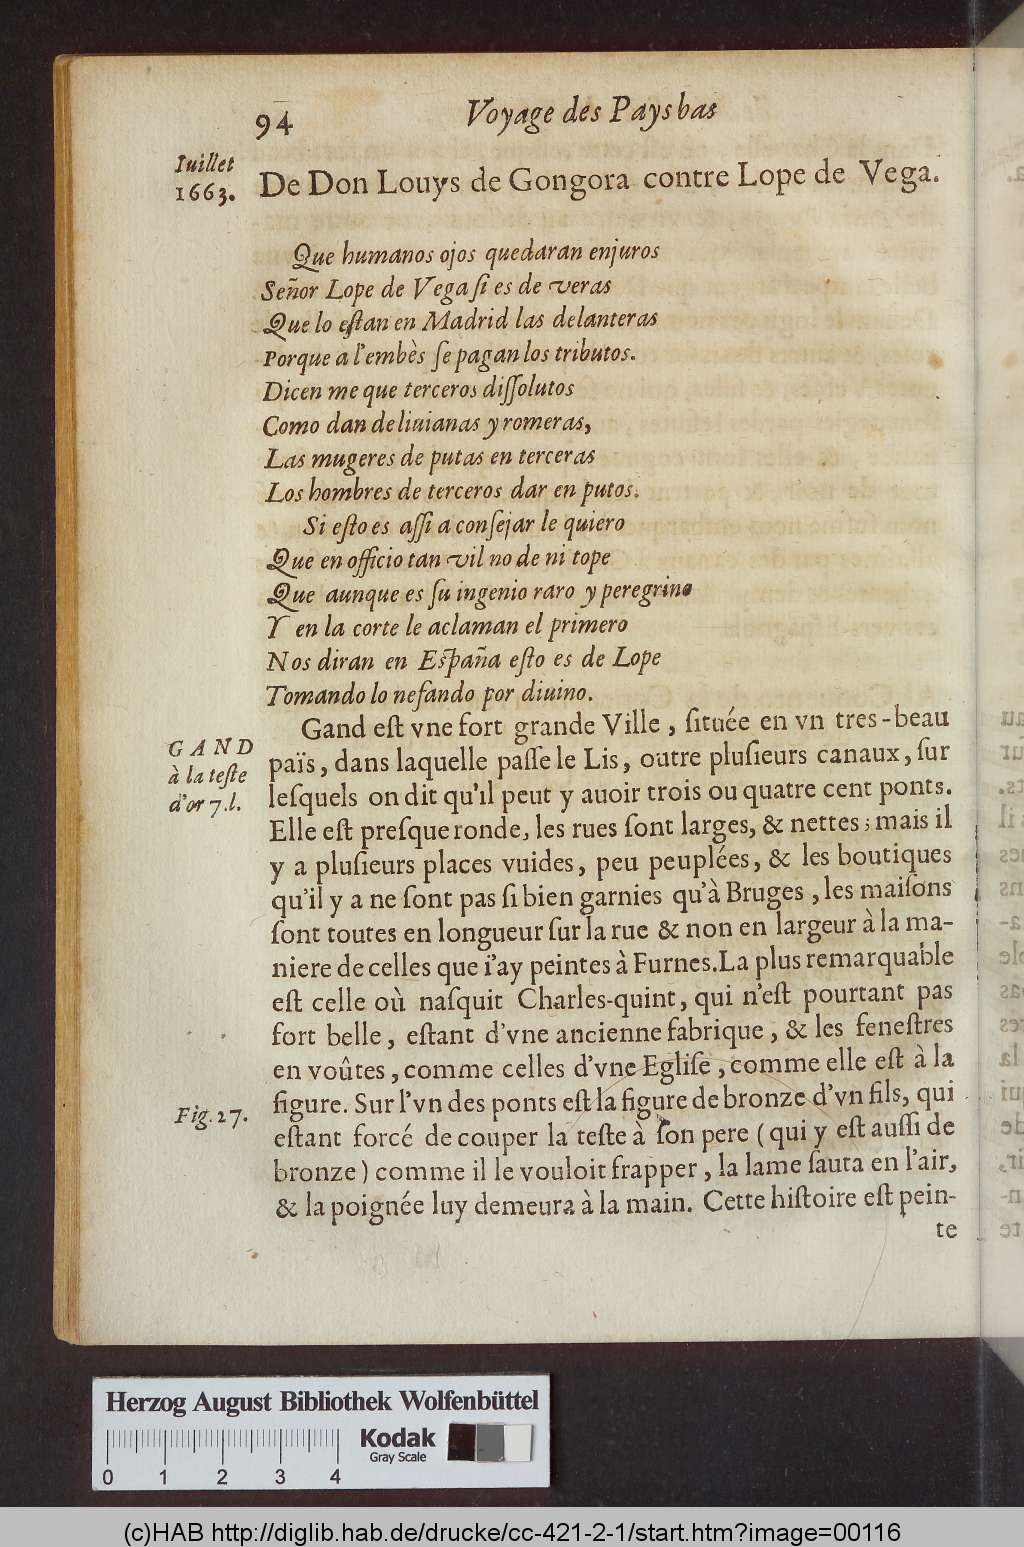 94
Voyage des Paysbas
Iuillet
1663.
De Don Louys de Gongora contre Lope de Vega.
Que humanos ojos quedaran enjuros
Señor Lope de Vega ſi es de veras
Que lo eſtan en Madrid las delanteras
Porque a l'embès ſe pagan los tributos.
Dicen me que terceros diſſolutos
Como dan de liuianas y romeras,
Las mugeres de putas en terceras
Los hombres de terceros dar en putos.
Si eſto es aſſi a conſejar le quiero
Que en officio tan vil no de ni tope
Que aunque es ſu ingenio raro y peregrino
Y en la corte le aclaman el primero
Nos diran en Eſpaña eſto es de Lope
Tomando lo nefando por diuino.
GAND
à la teſte
d'or 7.l.
Gand eſt vne fort grande Ville, ſituée en vn tres-beau
païs, dans laquelle paſſe le Lis, outre pluſieurs canaux, ſur
leſquels on dit qu'il peut y auoir trois ou quatre cent ponts.
Elle eſt preſque ronde, les rues ſont larges, & nettes; mais il
y a pluſieurs places vuides, peu peuplées, & les boutiques
qu'il y a ne ſont pas ſi bien garnies qu'à Bruges, les maiſons
ſont toutes en longueur ſur la rue & non en largeur à la ma-
niere de celles que i'ay peintes à Furnes. La plus remarquable
eſt celle où naſquit Charles-quint, qui n'eſt pourtant pas
fort belle, eſtant d'vne ancienne fabrique, & les feneſtres
en voûtes, comme celles d'vne Egliſe, comme elle eſt à la
Fig. 27.
figure. Sur l'vn des ponts eſt la figure de bronze d'vn fils, qui
eſtant forcé de couper la teſte à ſon pere (qui y eſt auſſi de
bronze) comme il le vouloit frapper, la lame ſauta en l'air,
& la poignée luy demeura à la main. Cette hiſtoire eſt pein-
te
Herzog August Bibliothek Wolfenbüttel
Kodak
Gray Scale
0 1 2 3 4
(c)HAB http://diglib.hab.de/drucke/cc-421-2-1/start.htm?image=00116